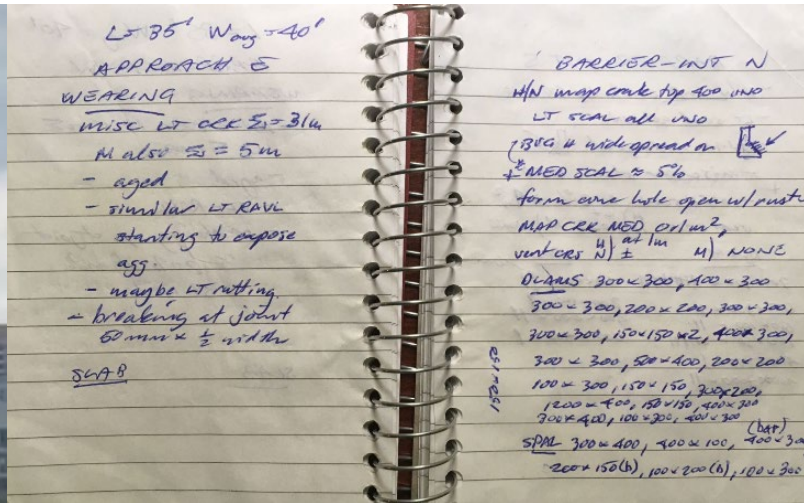 L= 35' Wavg = 40'
APPROACH E
WEARING
misc LT CRK Σ = 31m
M also Σ = 5m
- aged
- similar LT RAVL
starting to expose
agg.
- maybe LT rutting
- breaking at joint
60mm x 1/2 width
SLAB
BARRIER-INT N
H/N map crack top 400 UNO
LT SCAL all UNO
BUG H widespread on
MED SCAL ≈ 5%
form cone hole open w/ rust
MAP CRK MED 0.1m²,
vert CRS H) at 1m
N) ± M) NONE
DLAMS 300x300, 400x300
300x300, 200x200, 300x300,
300x300, 150x150x2, 400x300,
300x300, 500x400, 200x200
150x150
100x300, 150x150, 300x200,
1200x400, 150x150, 400x300
300x400, 100x300, 400x300
(bar)
SPAL 300x400, 400x100, 400x300
200x150(b), 100x200(b), 100x300